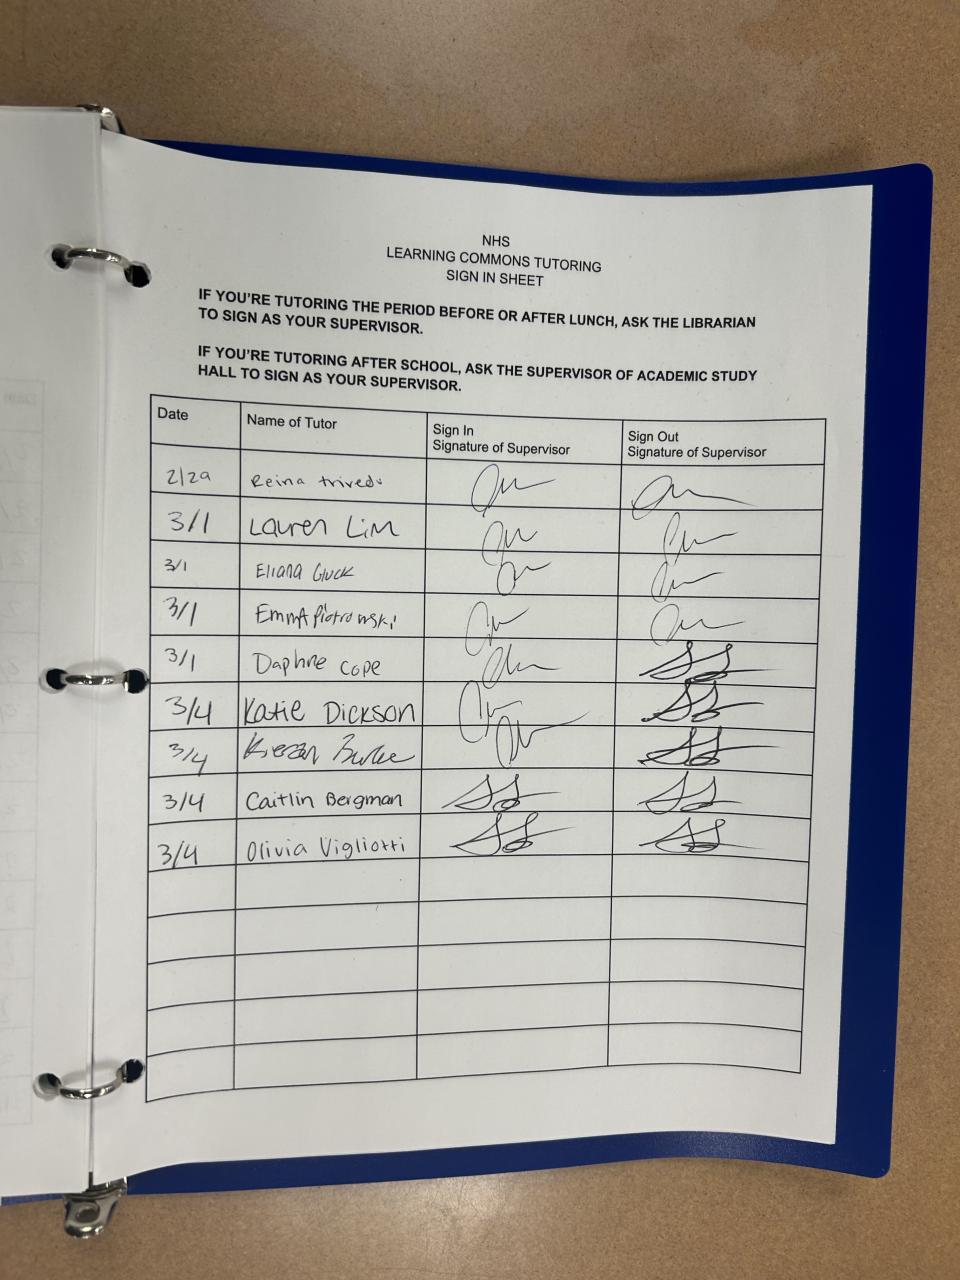 NHS
LEARNING COMMONS TUTORING
SIGN IN SHEET
IF YOU'RE TUTORING THE PERIOD BEFORE OR AFTER LUNCH, ASK THE LIBRARIAN
TO SIGN AS YOUR SUPERVISOR.
IF YOU'RE TUTORING AFTER SCHOOL, ASK THE SUPERVISOR OF ACADEMIC STUDY
HALL TO SIGN AS YOUR SUPERVISOR.
Date Name of Tutor Sign In Sign Out
Signature of Supervisor Signature of Supervisor
2/29 Reina trivedi
3/1 Lauren Lim
3/1 Eliana Gluck
3/1 Emma Piotrowski
3/1 Daphne Cope
3/4 Katie Dickson
3/4 Kieran
3/4 Caitlin Bergman
3/4 Olivia Vigliotti